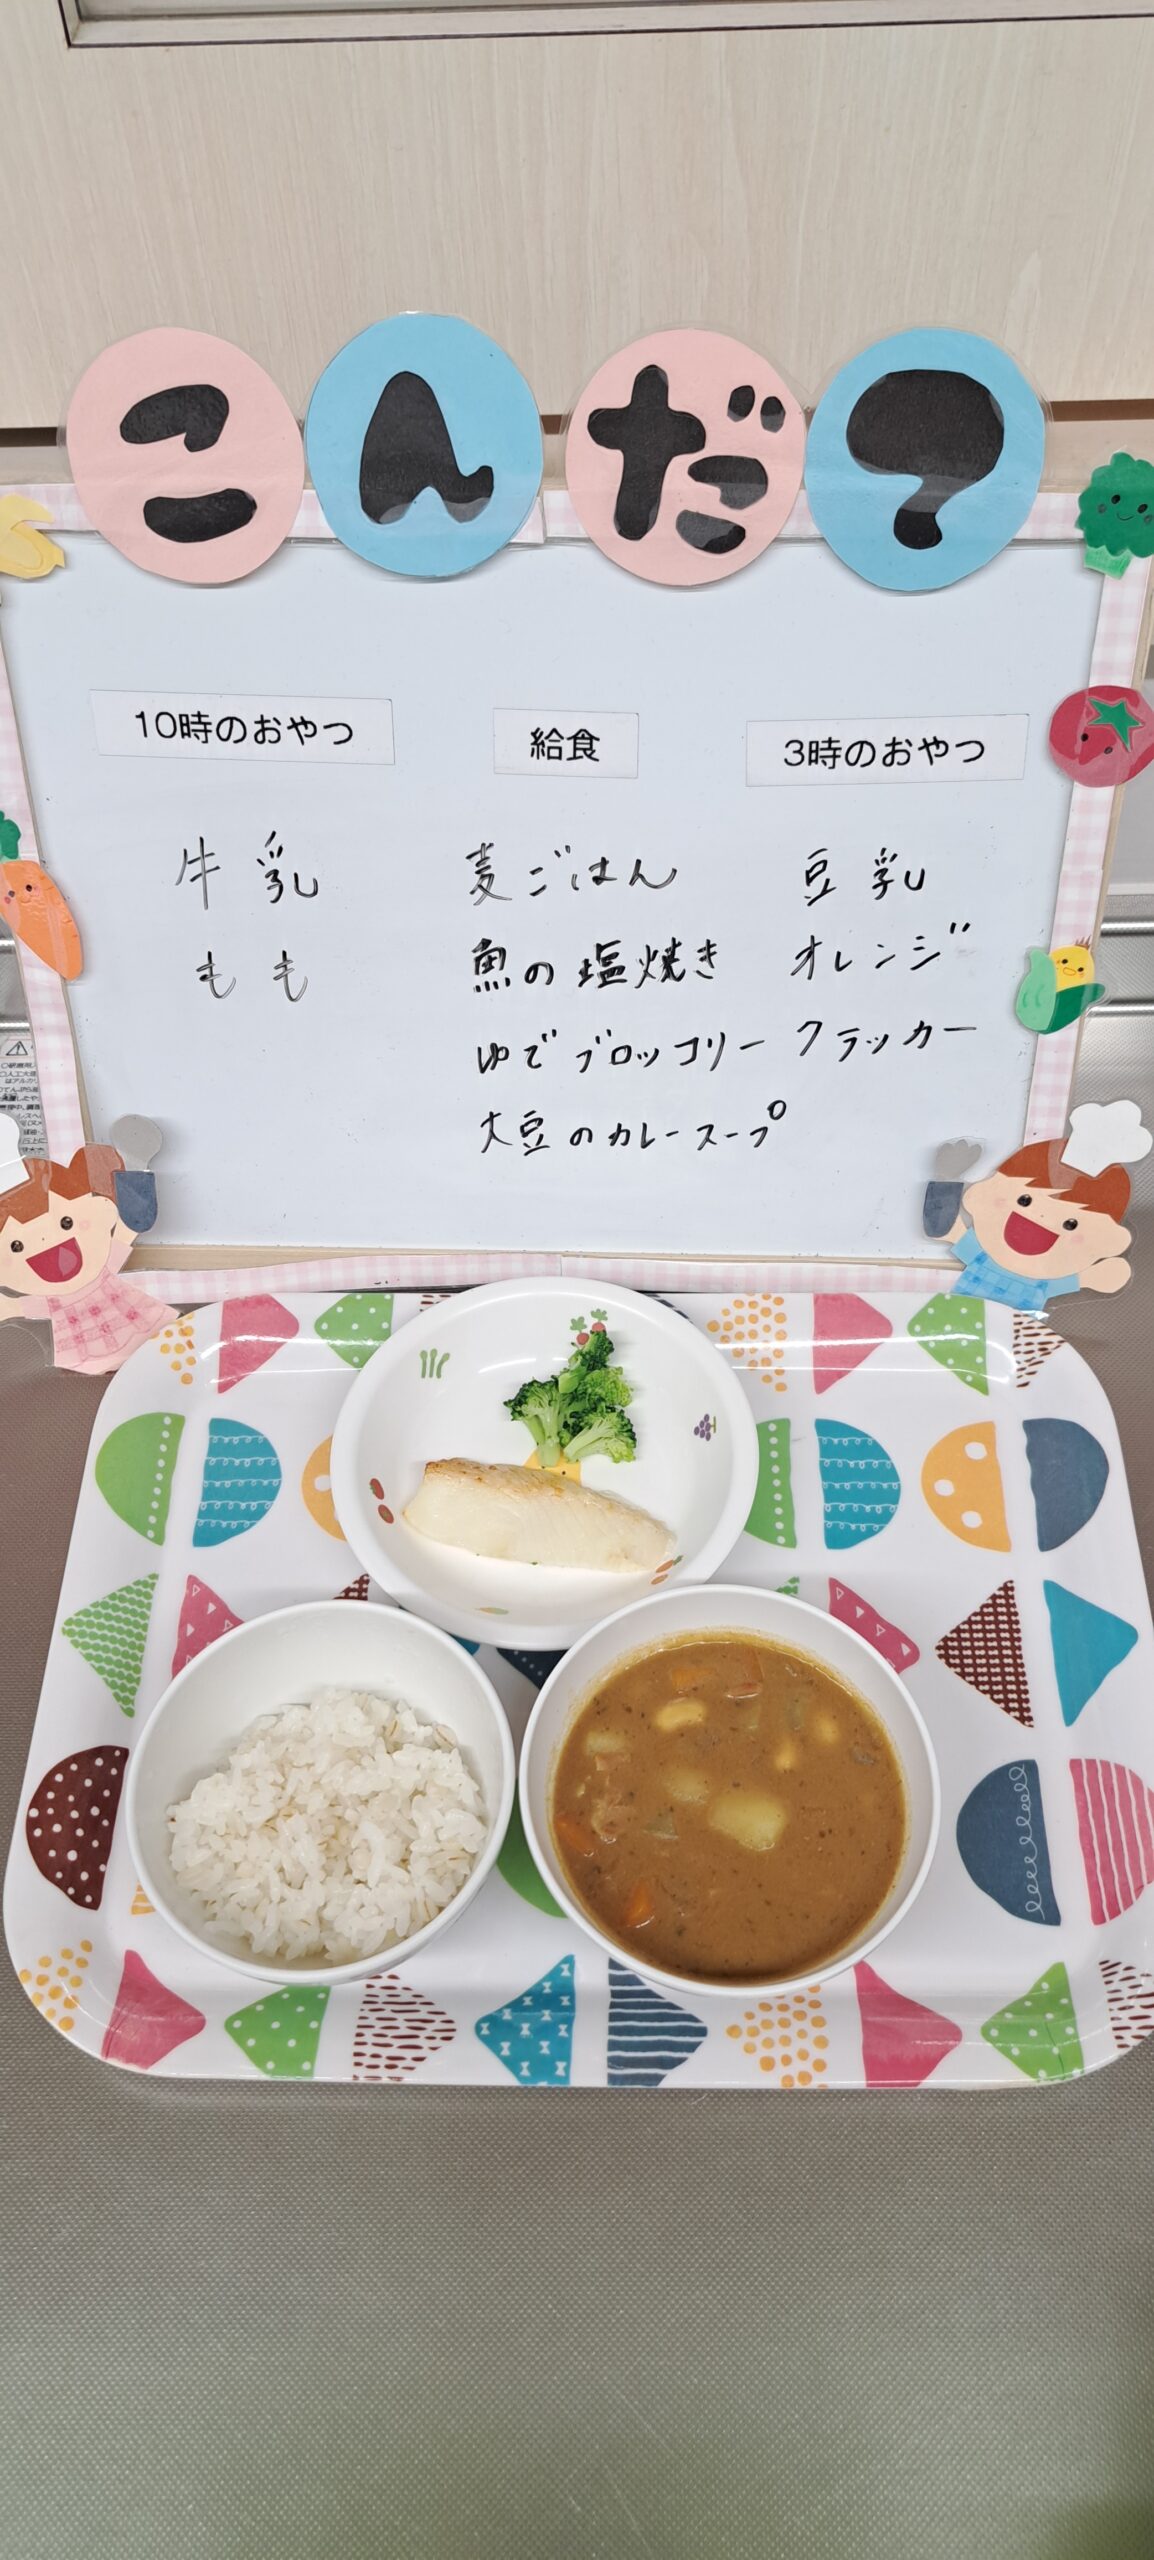 こんだて
10時のおやつ
牛乳
もも
給食
麦ごはん
魚の塩焼き
ゆでブロッコリー
大豆のカレースープ
3時のおやつ
豆乳
オレンジ
クラッカー